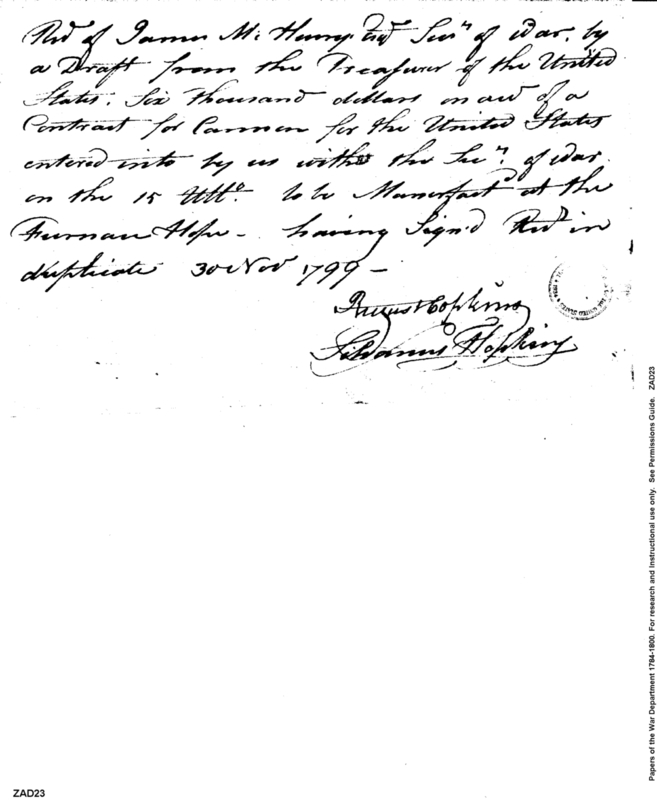 Recd of James McHenry Esqr Secry of War, by
a Draft from the Treasurer of the United
States, Six thousand dollars on acct of a
Contract for Cannon for the United States
entered into by us with the Secy. of War
on the 15 Ulto. to be Manufactd at the
Furnace Hope — having Sign'd Rects in
duplicate 30 Nov 1799 —
Rufus Hopkins
Silvanus Hopkins
Papers of the War Department 1784-1800. For research and Instructional use only. See Permissions Guide. ZAD23
ZAD23